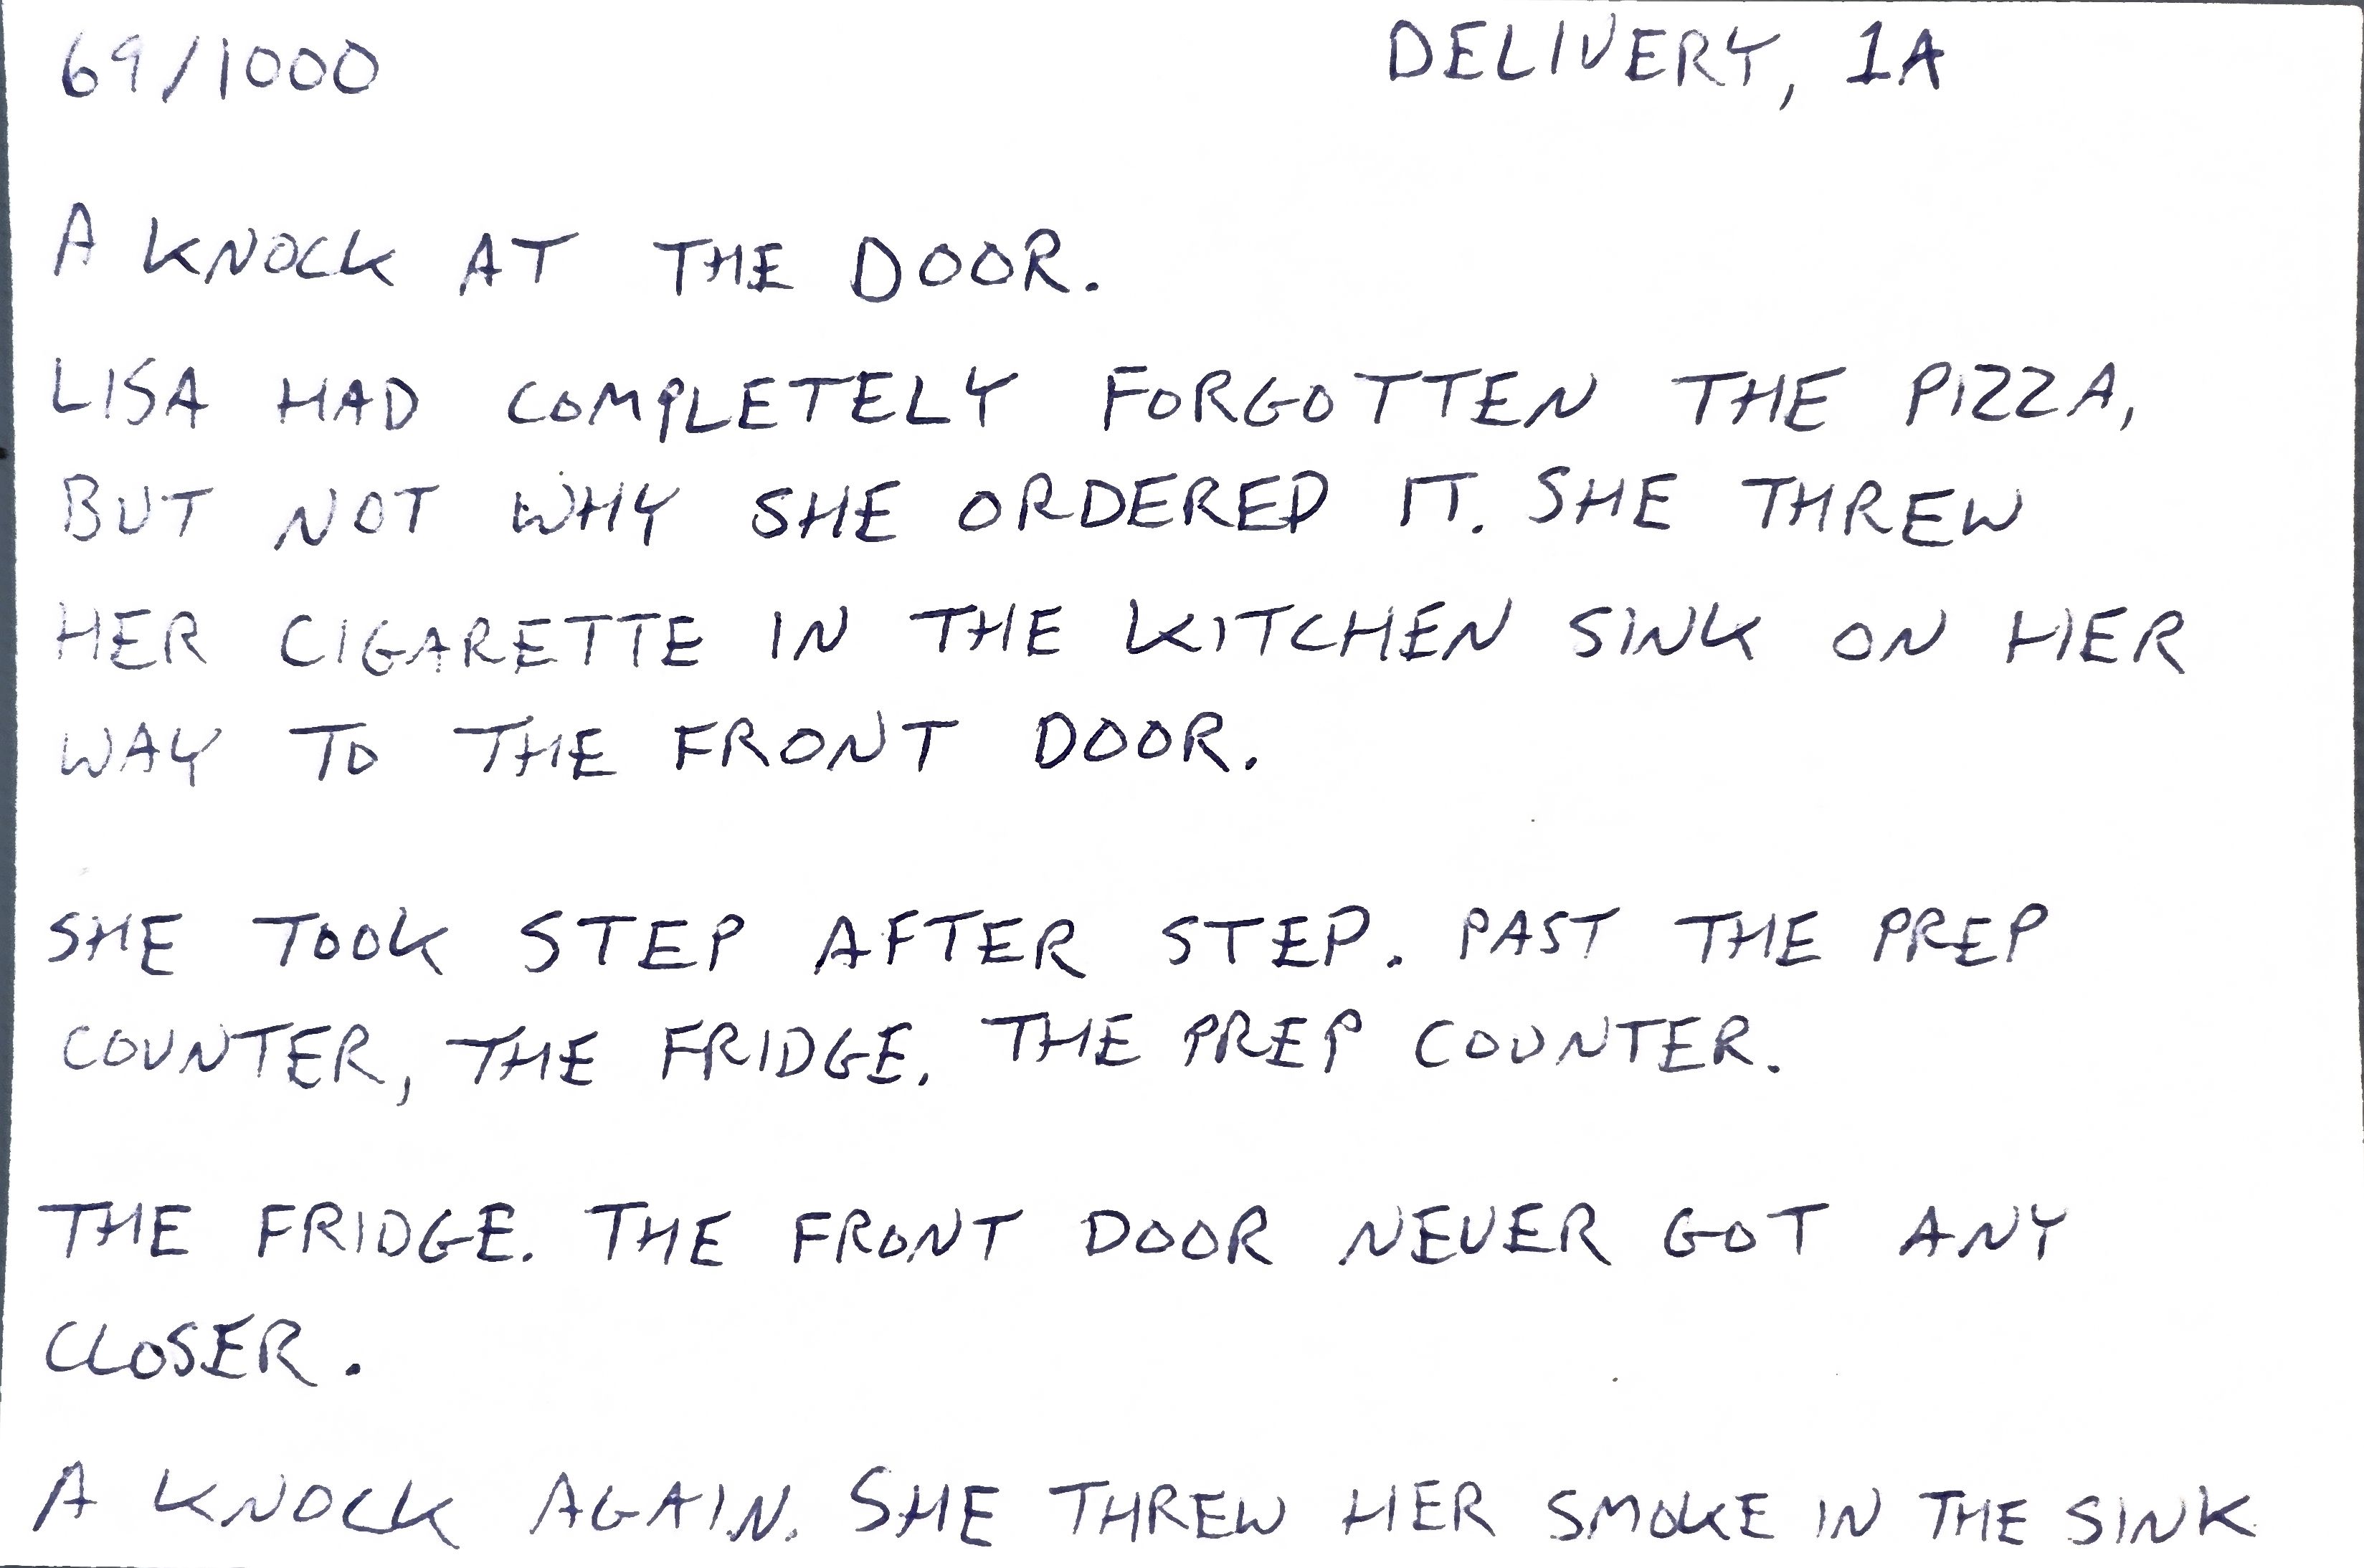 69/1000 DELIVERY, 1A
A KNOCK AT THE DOOR.
LISA HAD COMPLETELY FORGOTTEN THE PIZZA,
BUT NOT WHY SHE ORDERED IT. SHE THREW
HER CIGARETTE IN THE KITCHEN SINK ON HER
WAY TO THE FRONT DOOR.
SHE TOOK STEP AFTER STEP. PAST THE PREP
COUNTER, THE FRIDGE. THE PREP COUNTER.
THE FRIDGE. THE FRONT DOOR NEVER GOT ANY
CLOSER.
A KNOCK AGAIN. SHE THREW HER SMOKE IN THE SINK